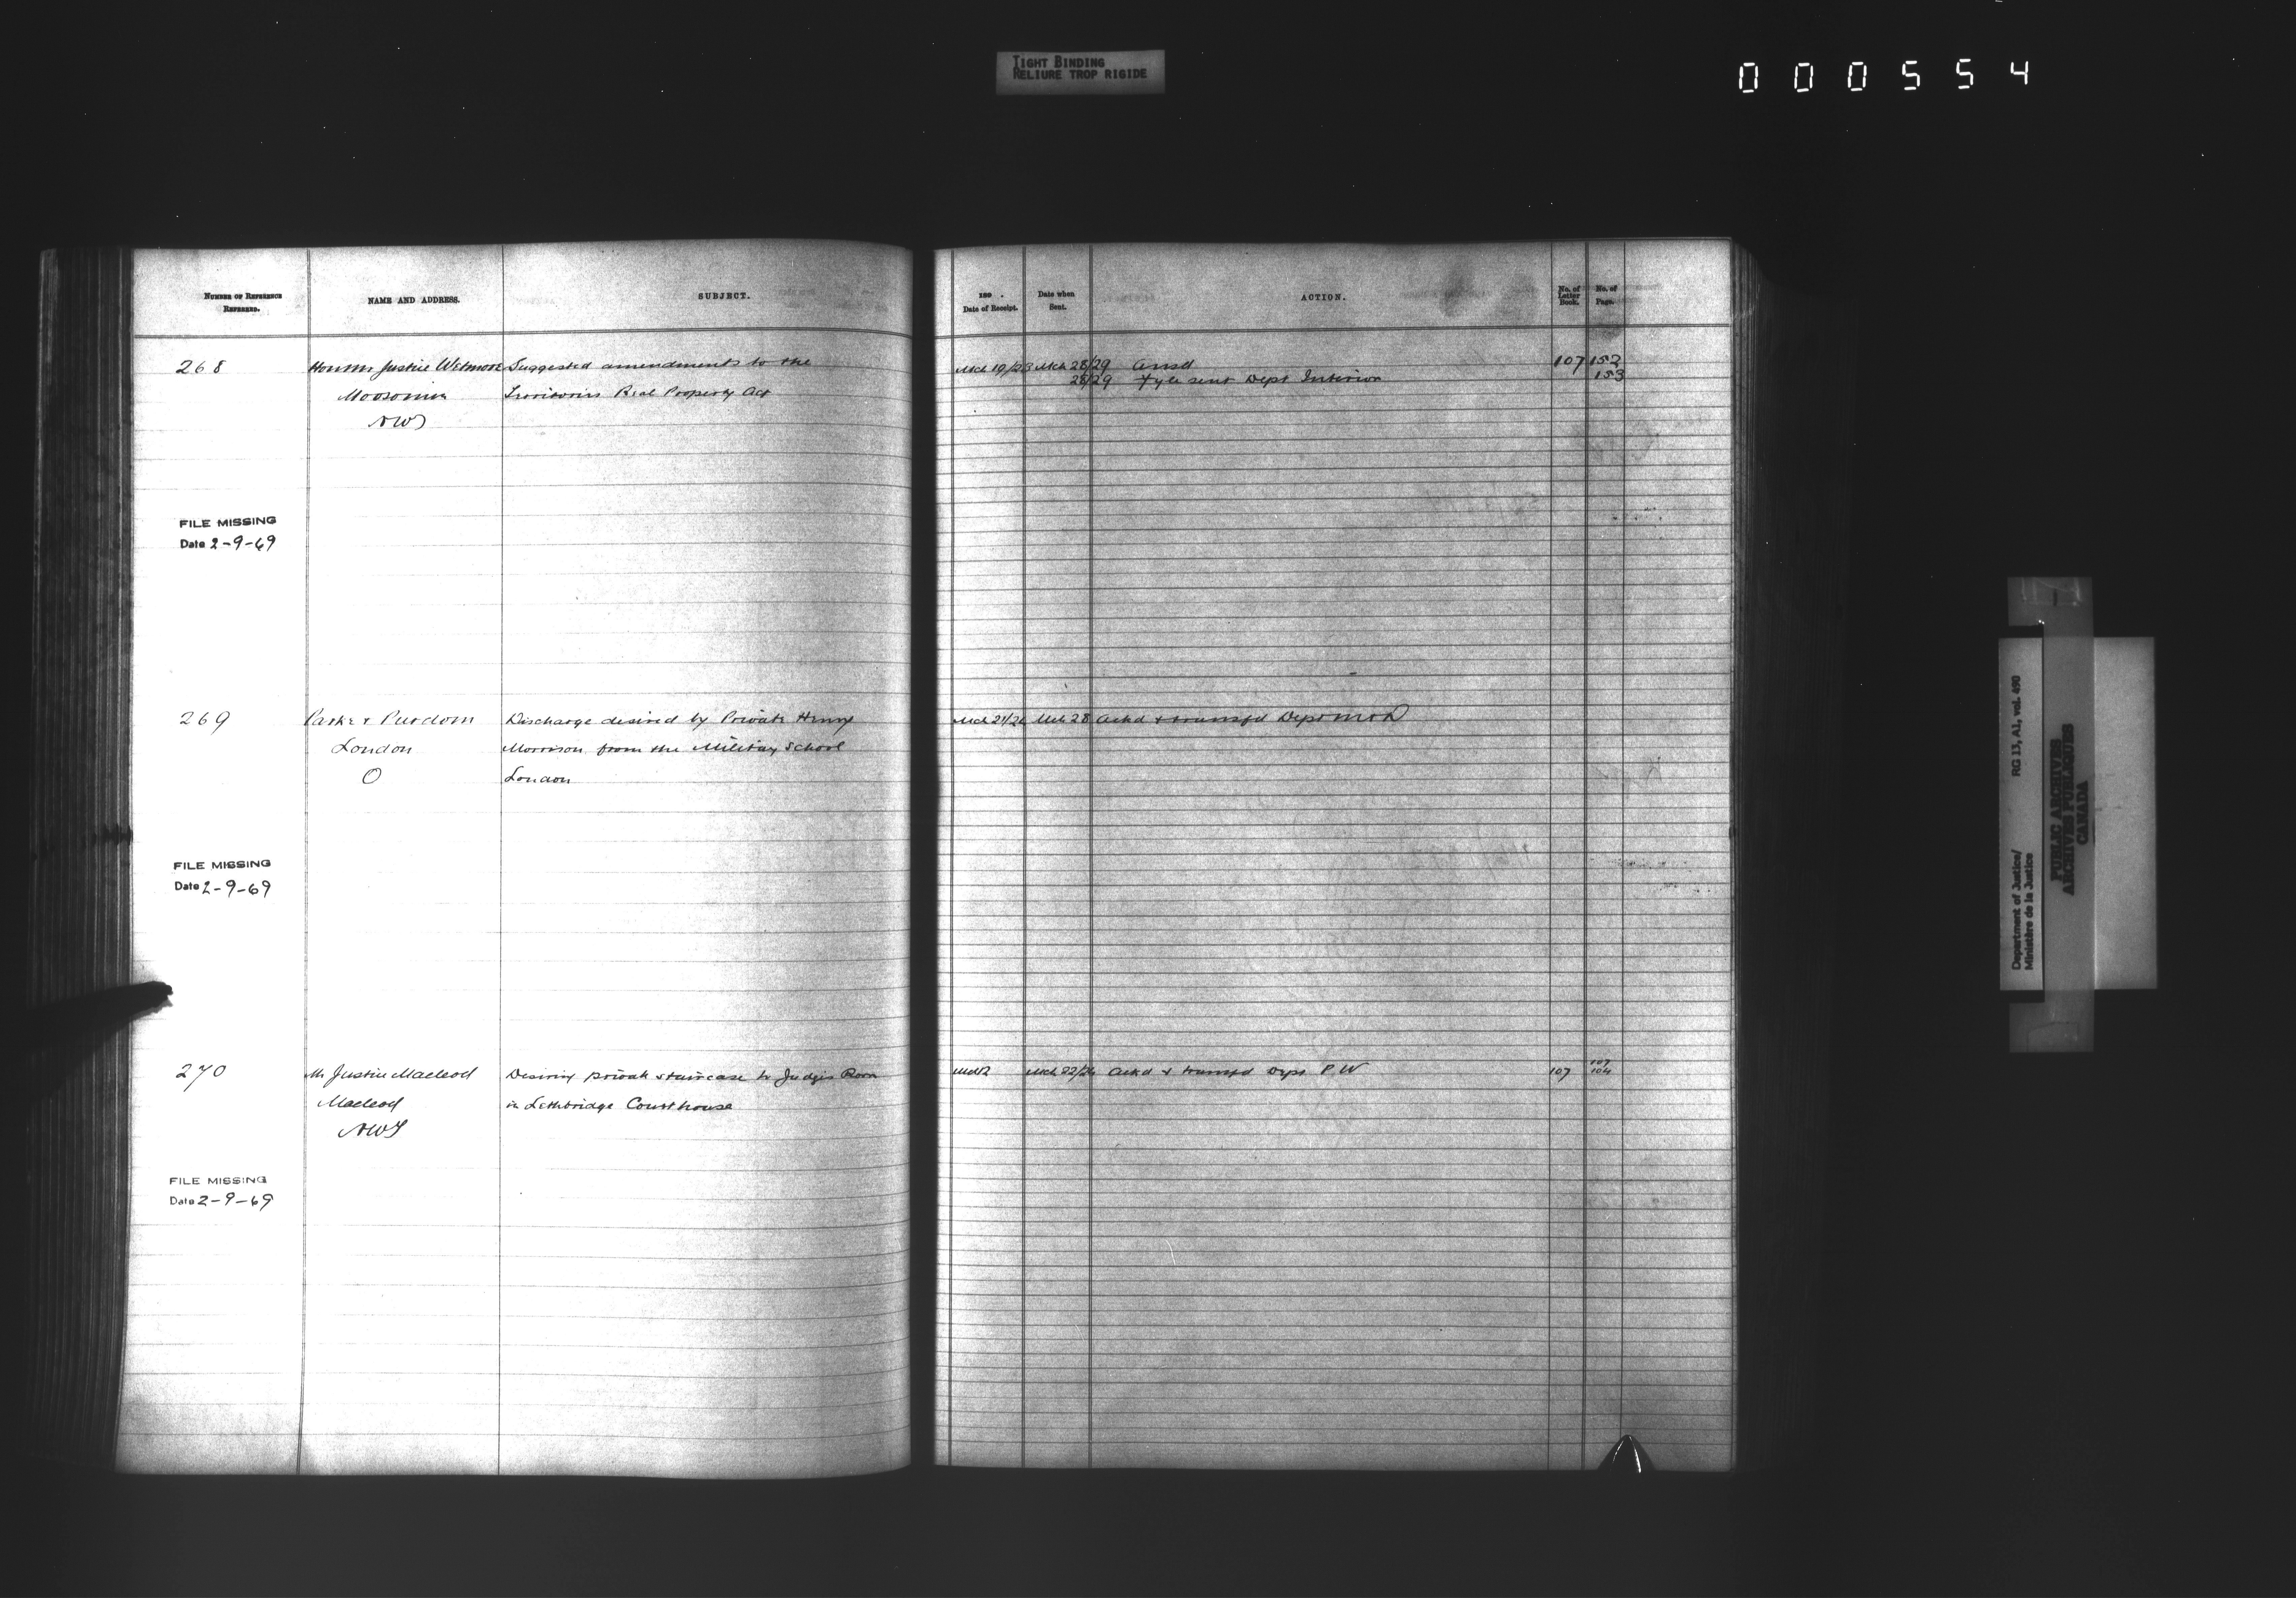 TIGHT BINDING
RELIURE TROP RIGIDE
000554
NUMBER OF REFERENCE
REFERRED.
NAME AND ADDRESS.
SUBJECT.
189 .
Date of Receipt.
Date when
Sent.
ACTION.
No. of
Letter
Book.
No. of
Page.
268
Justice Wetmore
Moosomin
NWT
Suggested amendments to the
Territories Real Property Act
Mch 19/28
Mch 28/29
28/29
Ansd
Fyle sent Dept Interior
107
152
153
FILE MISSING
Date 2-9-69
269
Parke & Purdom
London
O
Discharge desired by Private Henry
Morrison from the Military School
London
Mch 28
Ackd & transfd Dept
FILE MISSING
Date 2-9-69
270
Mr Justice Macleod
Macleod
NWT
Desiring private staircase to Judges Room
in Lethbridge Courthouse
Mch 22/26
Ackd & transfd Dept P W
107
104
FILE MISSING
Date 2-9-69
Department of Justice/
Ministère de la Justice
RG 13, A1, vol. 490
PUBLIC ARCHIVES
ARCHIVES PUBLIQUES
CANADA